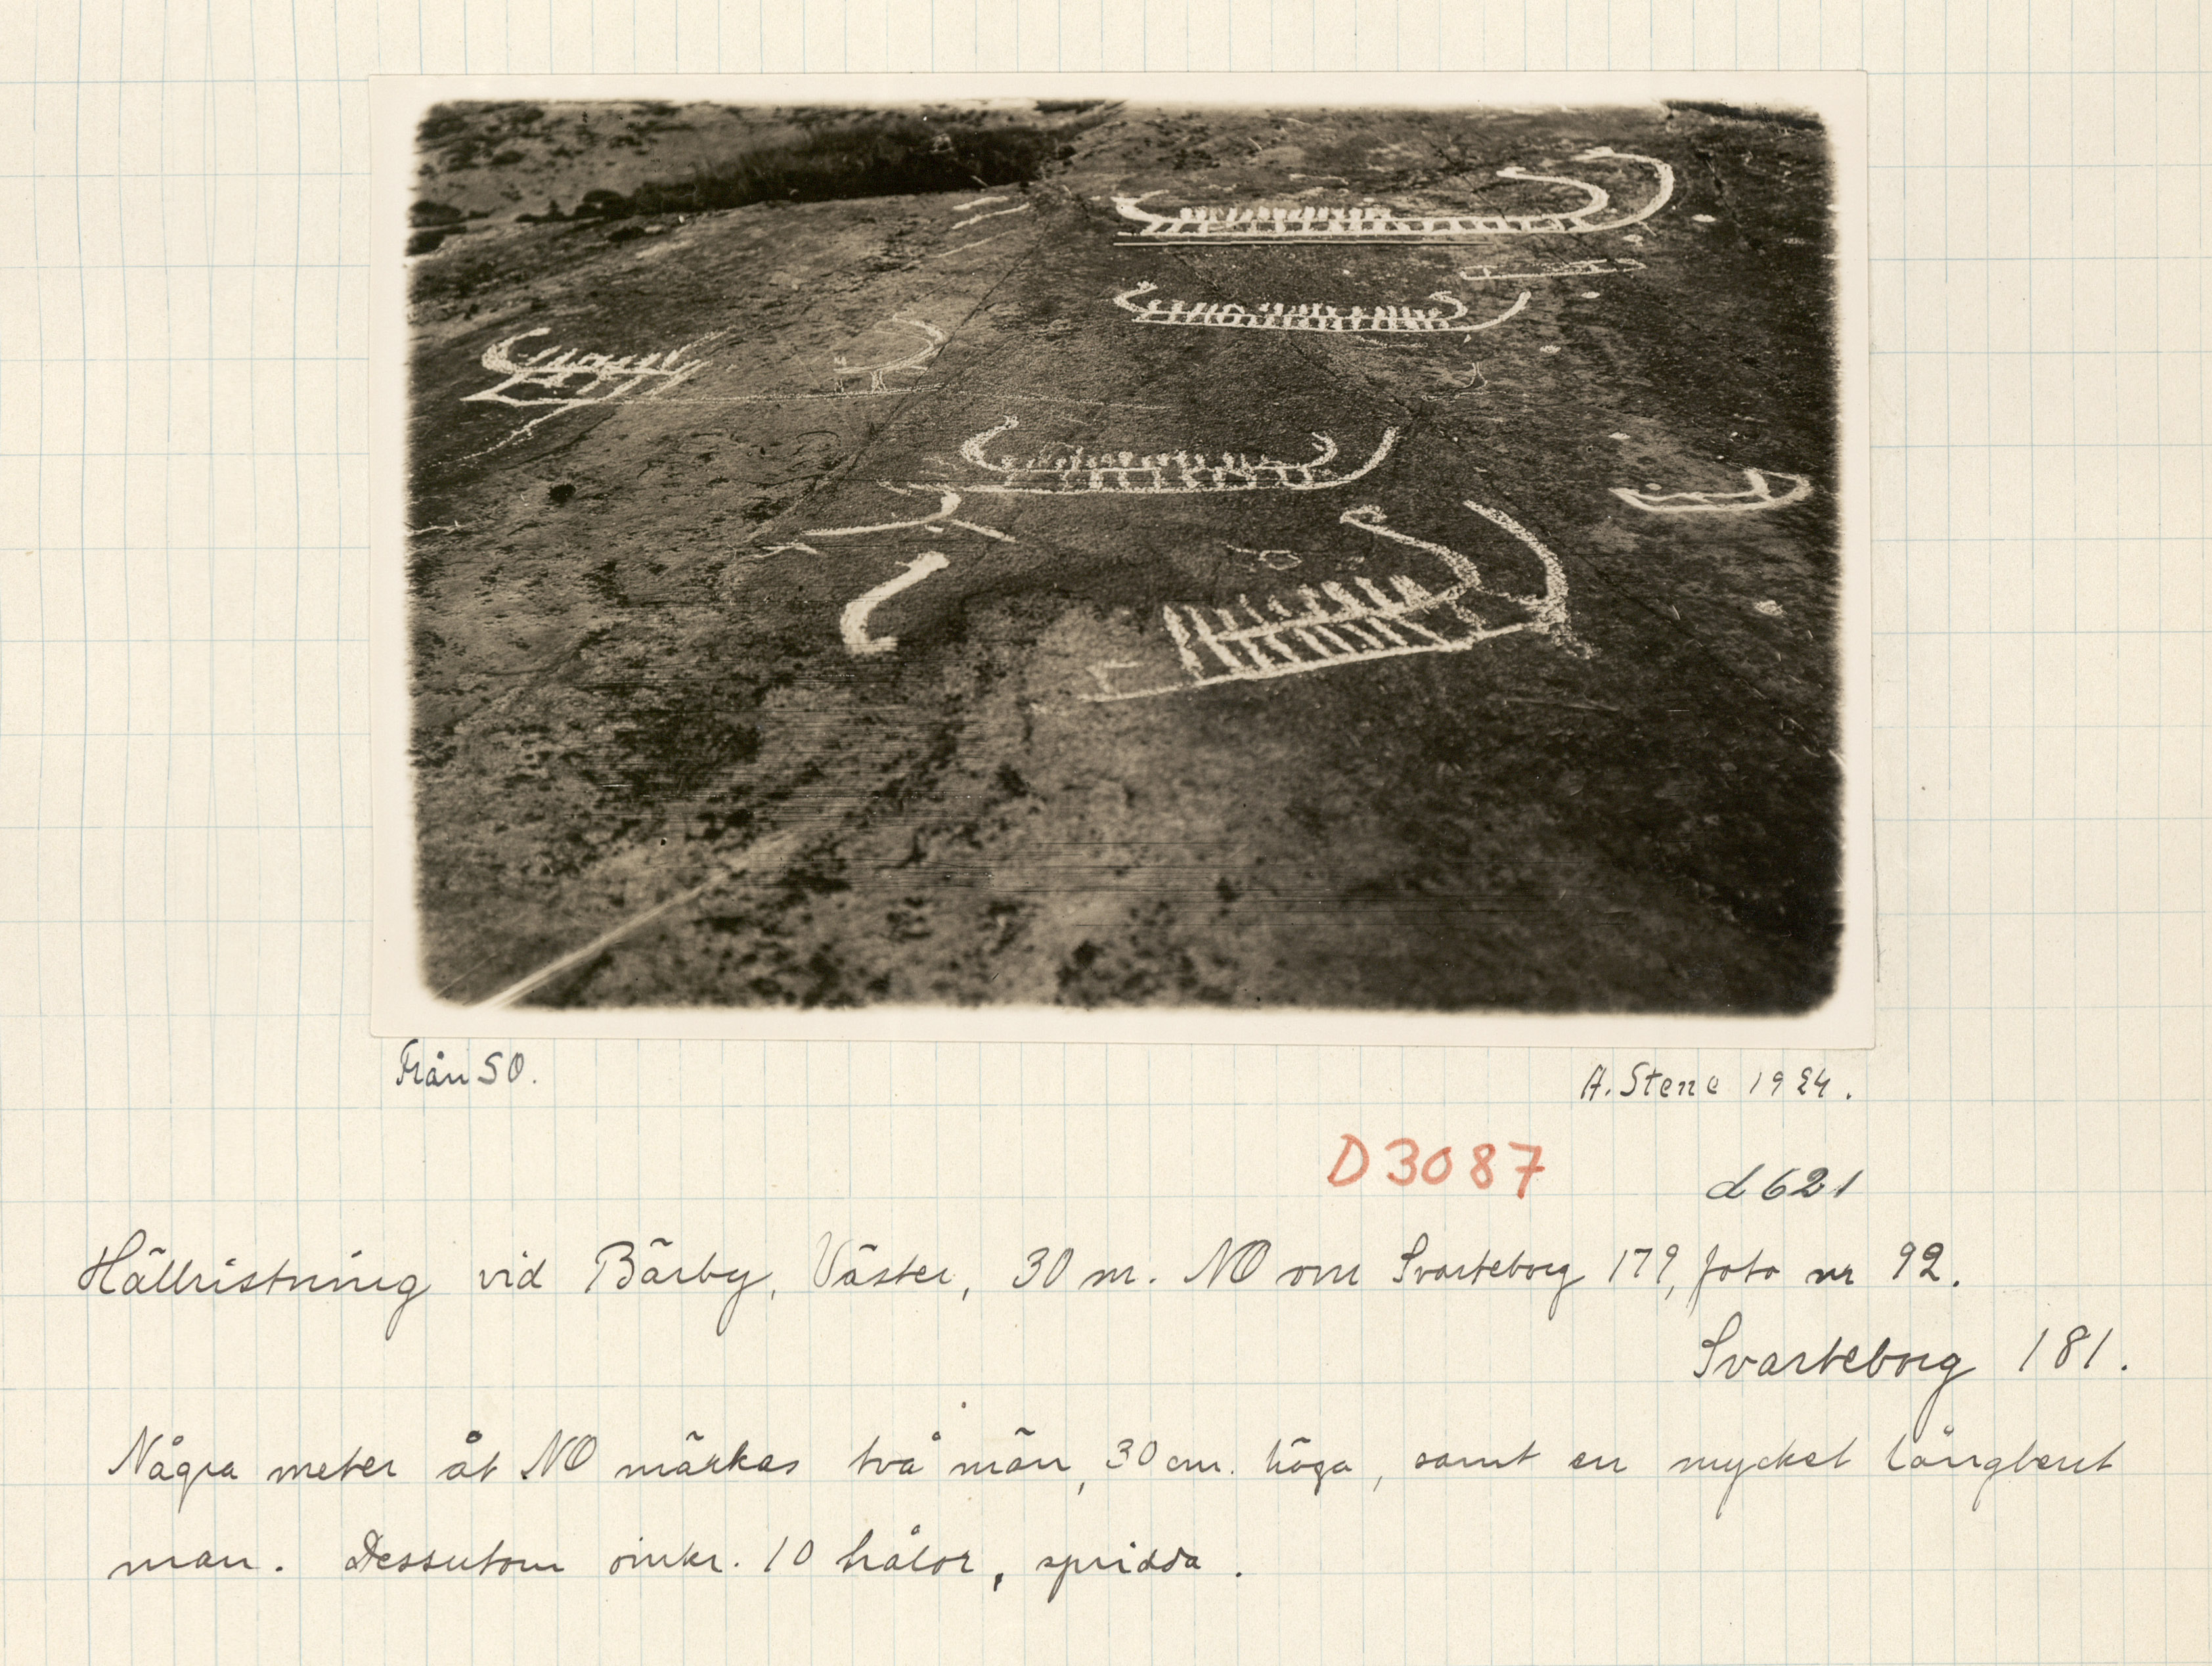 Från SO.
A. Stene 1924.
D3087
d621
Hällristning vid Bärby, Väster, 30 m. NO om Svarteborg 179, foto nr 92.
Svarteborg 181.
Några meter åt NO märkas två män, 30 cm. höga, samt en mycket långbent
man. Dessutom omkr. 10 hålor, spridda.